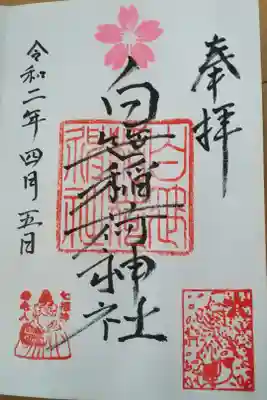 奉拝
白笹稲荷神社
令和二年四月五日
七福神